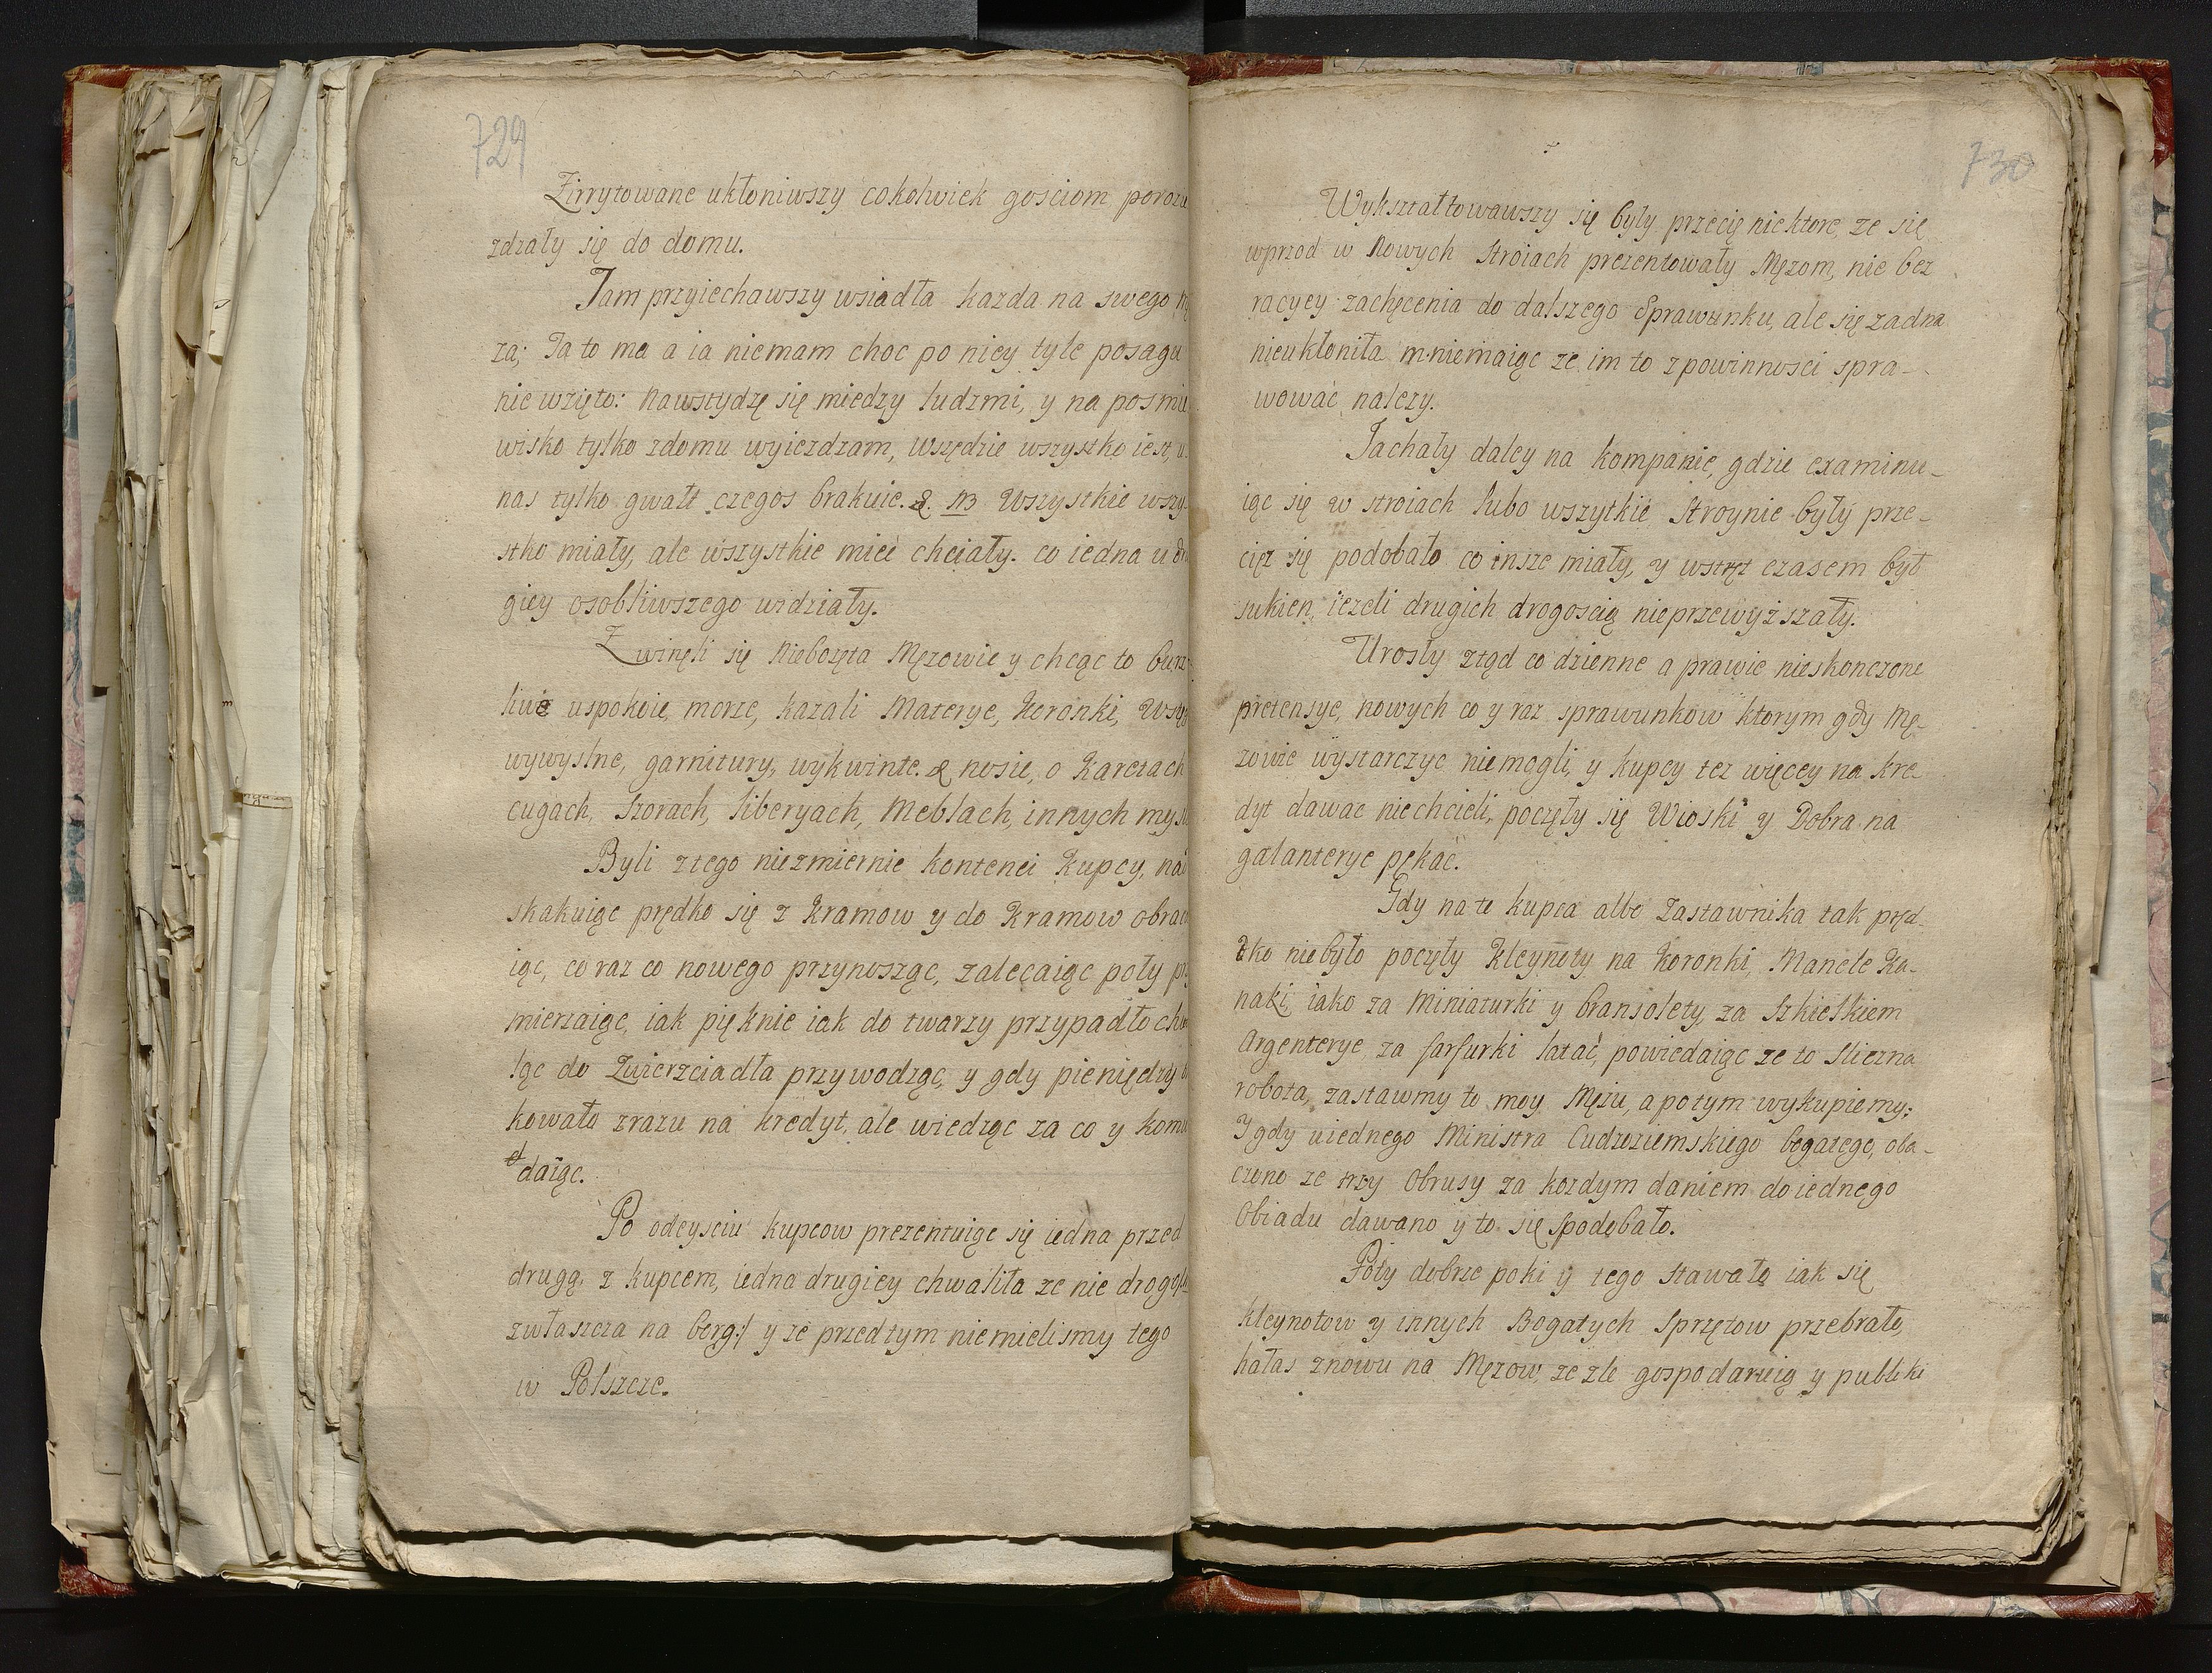 729
Zirrytowane ukłoniwszy cokolwiek gosciom poroze
zdzały się do domu.
Tam przyiechawszy wsiadła kazda na swego mę
za; Ta to ma a ia niemam choc po niey tyle posagu
nie wzięto: Nawstydzę się miedzy ludzmi, y na posmie
wisko tylko zdomu wyiezdzam, wszędzie wszystko iest, u
nas tylko gwałt czegos brakuie. &. NB Wszystkie wszy-
stko miały, ale wszystkie mieć chciały. co iedna u dru
giey osobliwszego widziały.
Zwinęli się Niebozęta Mężowie y chcąc to burz-
liwe uspokoic morze, kazali Materye, Koronki,
wywyslne, garnitury, wykwinte. & nosic, o Karetach
cugach, Szorach, liberyach, Meblach, innych
Byli ztego niezmiernie kontenci Kupcy, nad
skakuiąc prędko się z Kramow y do Kramow
iąc, co raz co nowego przynosząc, zalecaiąc poły
mierzaiąc, iak pięknie iak do twarzy przypadło chwa
ląc do Zwierzciadła przywodząc, y gdy pieniędzy
kowało zrazu na kredyt, ale wiedząc za co y komu
daiąc.
Po odeysciu kupcow prezentuiąc się iedna przed
drugą, z kupcem, iedna drugiey chwaliła ze nie drogo
zwłaszcza na berg:/ y ze przedtym niemielismy tego
w Polszcze.
730
Wykształtowawszy się były przecię niektore, ze się
wprzod w Nowych Stroiach prezentowały Męzom, nie bez
racyey zachęcenia do dalszego Sprawunku, ale się zadna
nieukłoniła mniemaiąc ze im to z powinnosci spra-
wować nalezy.
Jachały daley na kompanie, gdzie examinu-
iąc się w stroiach lubo wszytkie Stroynie były prze-
cięz się podobało co insze miały, y wstręt czasem był
sukien, iezeli drugich drogoscią nieprzewyższały.
Urosły ztąd co dzienne a prawie nieskonczone
pretensye, nowych co y raz sprawunkow ktorym gdy Mę-
zowie wystarczyc niemogli, y kupcy tez więcey na kre
dyt dawac niechcieli, poczęły się Wioski y Dobra na
galanterye pękać.
Gdy na to kupca albo Zastawnika tak pręd-
ko niebyło poczęły Kleynoty na Koronki, Manele Ka-
naki, iako za Miniaturki y bransolety, za Szkiełkiem
Argenterye za farfurki latać, powiedaiąc ze to sliczna
robota, zastawmy to moy Mężu, a potym wykupiemy;
Y gdy uiednego Ministra Cudzoziemskiego bogatego, oba-
czono ze trzy Obrusy za kozdym daniem do iednego
Obiadu dawano y to się spodobało.
Póty dobrze poki y tego stawało iak się
kleynotow y innych Bogatych Sprzętow przebrało,
hałas znowu na Męzow, ze zle gospodaruią y publiki